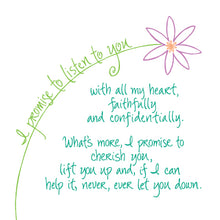 I promise to listen to you
with all my heart,
faithfully
and confidentially.
What's more, I promise to
cherish you,
lift you up and, if I can
help it, never, ever let you down.